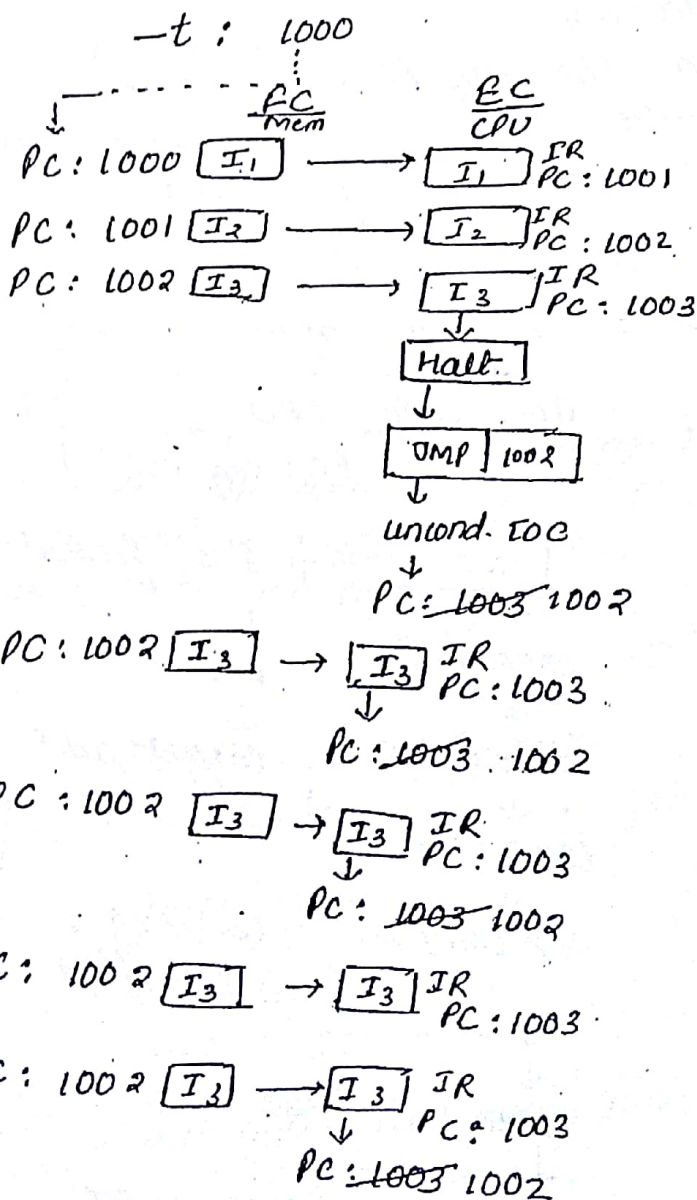 -t : 1000
FC EC
Mem CPU
PC: 1000 I1 → I1 IR
PC: 1001
PC: 1001 I2 → I2 IR
PC: 1002
PC: 1002 I3 → I3 IR
PC: 1003
Halt.
JMP 1002
uncond. TOC
PC: 1003 1002
PC: 1002 I3 → I3 IR
PC: 1003
PC: 1003 1002
PC: 1002 I3 → I3 IR
PC: 1003
PC: 1003 1002
C: 1002 I3 → I3 IR
PC: 1003
C: 1002 I3 → I3 IR
PC: 1003
PC: 1003 1002